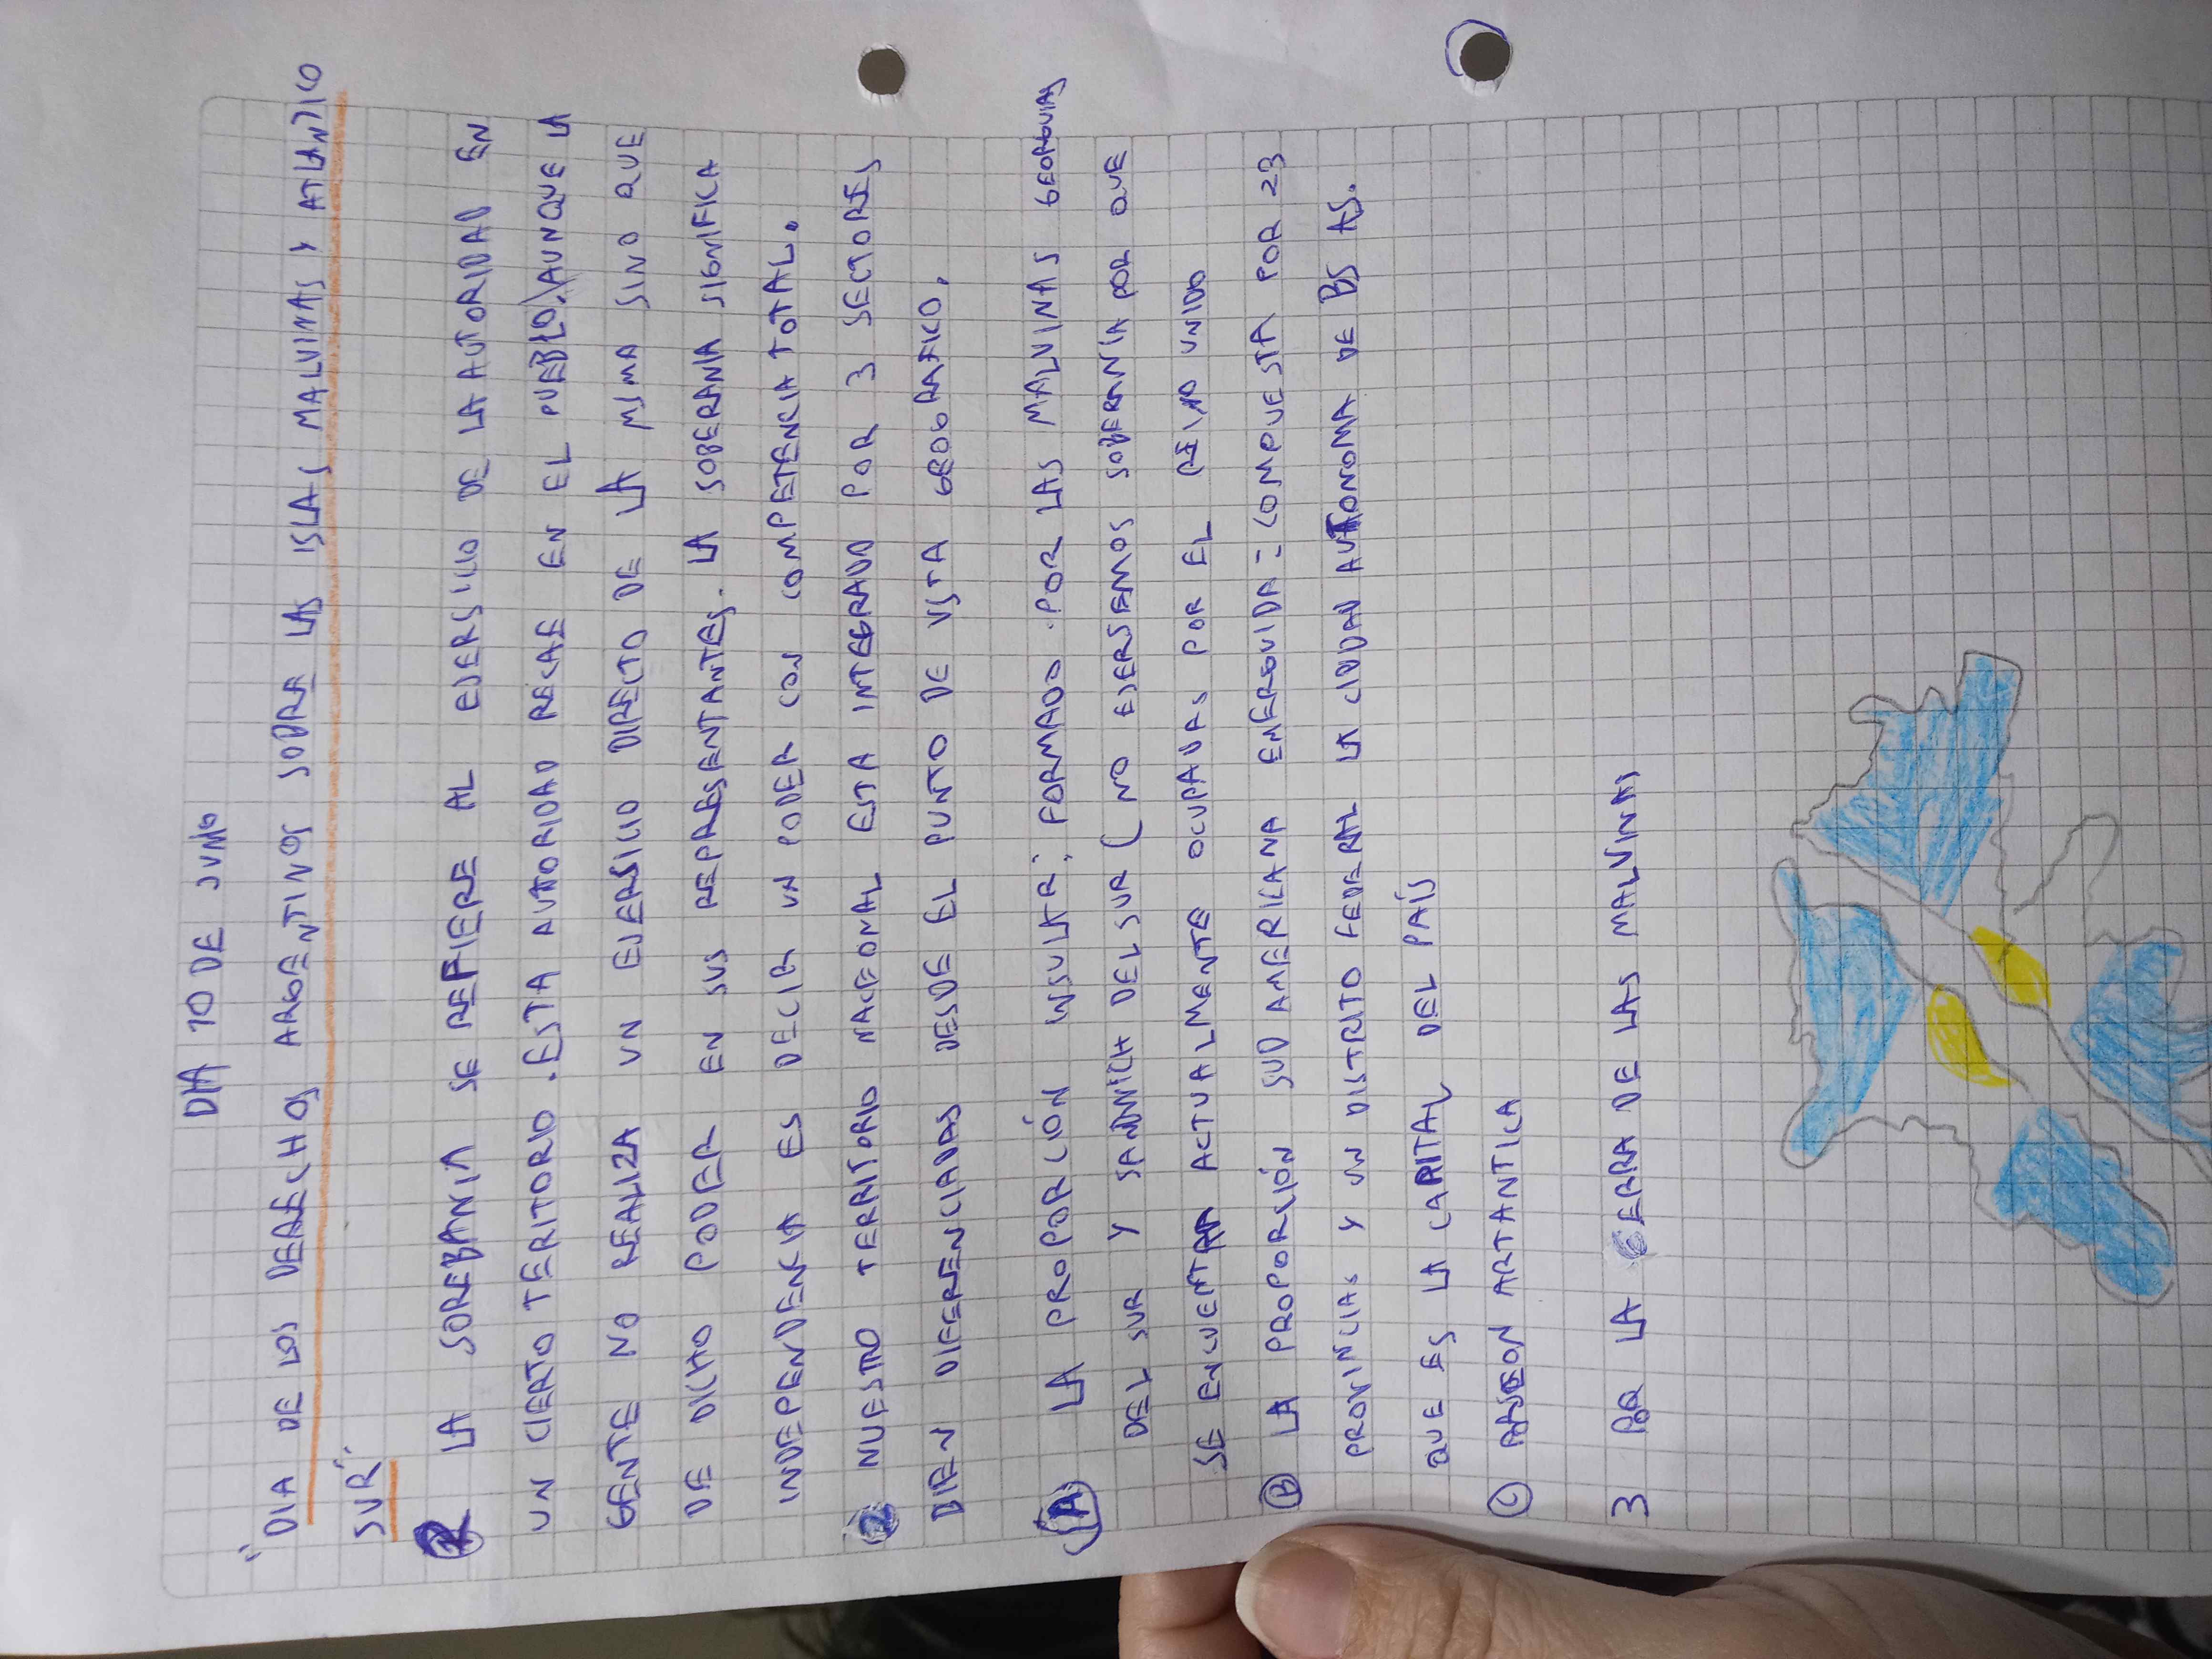 DIA 10 DE JUNIO
"DIA DE LOS DERECHOS ARGENTINOS SOBRE LAS ISLAS MALVINAS Y ATLANTICO
SUR".
LA SOREBANIA SE REFIERE AL EJERSICIO DE LA AUTORIDAD EN
UN CIERTO TERITORIO. ESTA AUTORIDAD RECAE EN EL PUEBLO. AUNQUE LA
GENTE NO REALIZA UN EJERSICIO DIRECTO DE LA MISMA SINO QUE
DE DICHO PODER EN SUS REPRESENTANTES. LA SOBERANIA SIGNIFICA
INDEPENDENCIA ES DECIR UN PODER CON COMPETENCIA TOTAL.
2 NUESTRO TERRITORIO NACIONAL ESTA INTEGRADO POR 3 SECTORES
BIEN DIFERENCIADAS DESDE EL PUNTO DE VISTA GEOGRAFICO.
A LA PROPORCIÓN INSULAR: FORMADO POR LAS MALVINAS GEORGUIAS
DEL SUR Y SANDWICH DEL SUR ( NO EJERSEMOS SOBERANIA POR QUE
SE ENCUENTRA ACTUALMENTE OCUPADAS POR EL REINO UNIDO
B LA PROPORCIÓN SUD AMERICANA EMERGUIDA: COMPUESTA POR 23
PROVINCIAS Y UN DISTRITO FEDERAL LA CIUDAD AUTONOMA DE BS AS.
QUE ES LA CAPITAL DEL PAÍS
C ARTANTICA
3 POR LA GERRA DE LAS MALVINAS